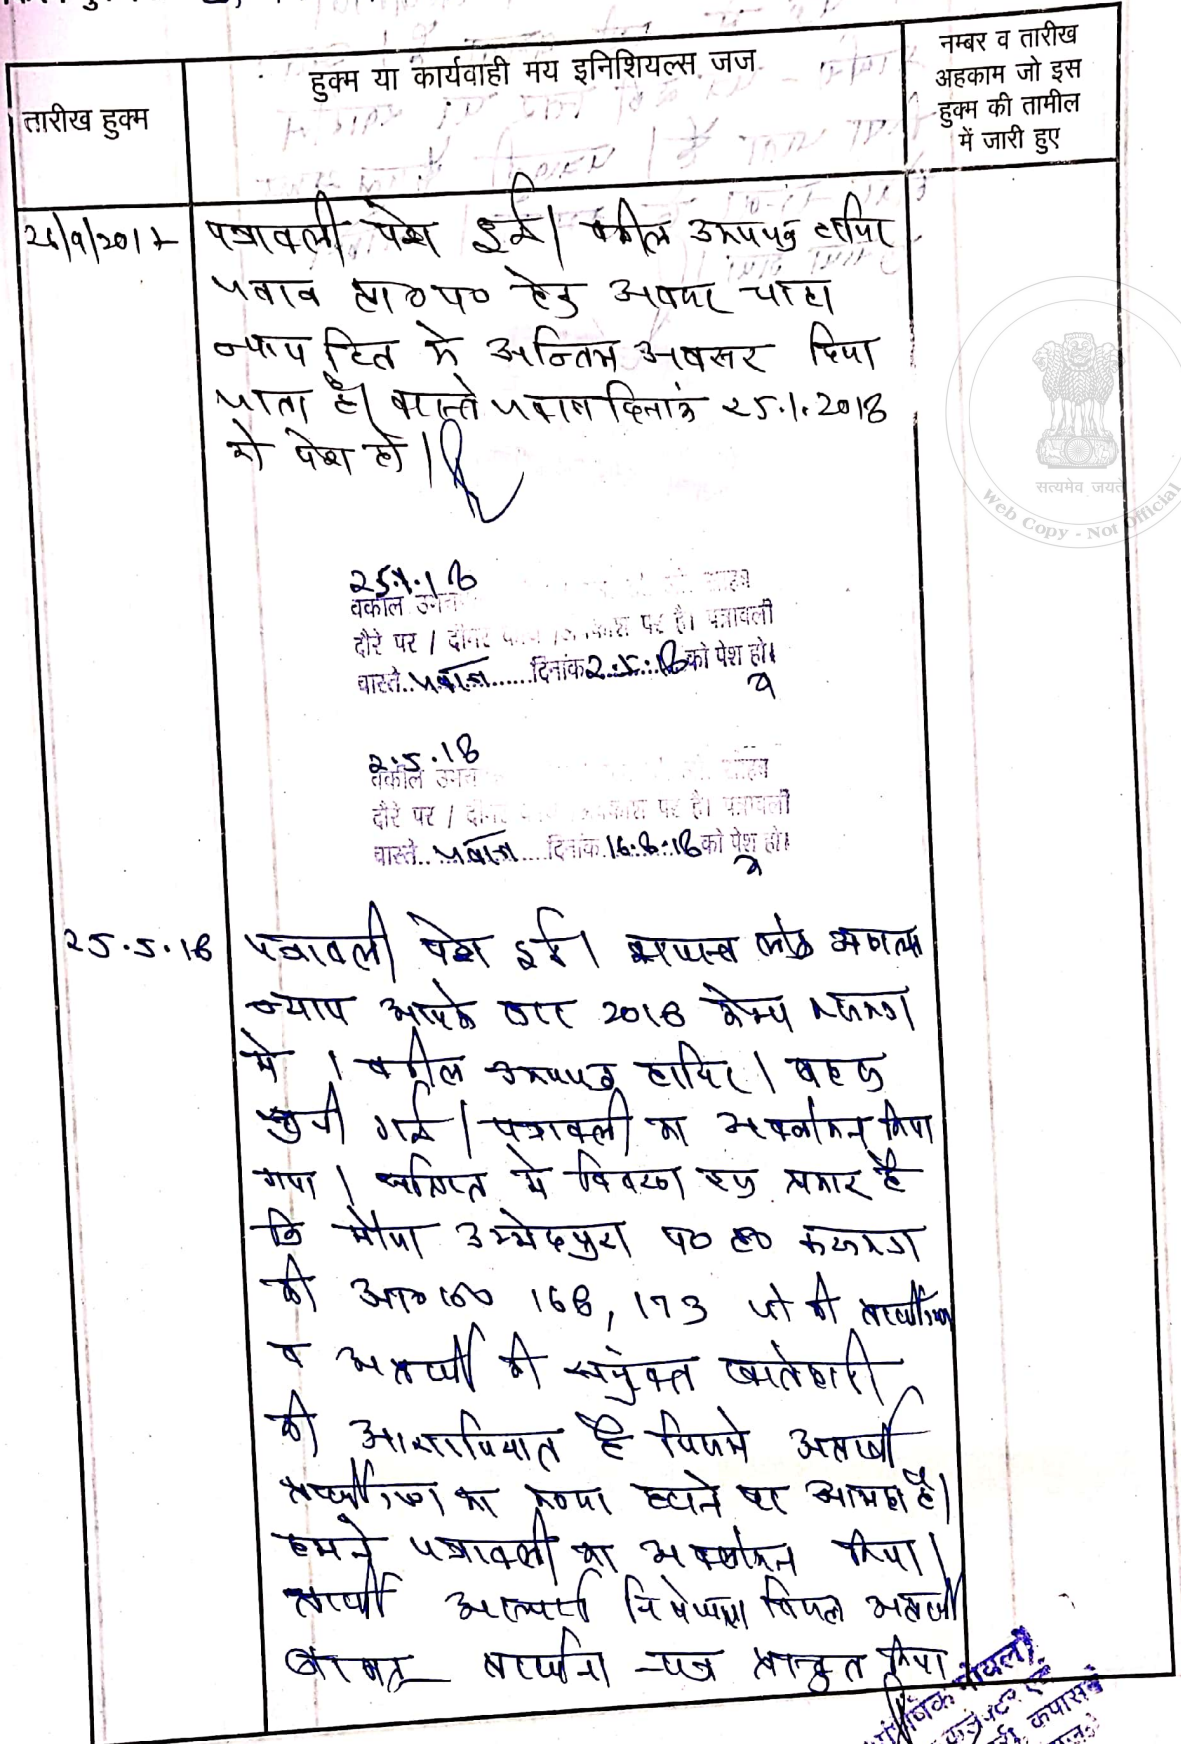 हुक्म या कार्यवाही मय इनिशियल्स जज
नम्बर व तारीख
अहकाम जो इस
हुक्म की तामील
में जारी हुए
तारीख हुक्म
पत्रावली पेश हुई। वकील उभयपक्ष हाजिर
जवाब प्रा०प० हेतु अवसर चाहा
न्याय हित में अन्तिम अवसर दिया
जाता है। वास्ते जवाब दिनांक 25.1.2018
को पेश हो।
सत्यमेव जयते
Web Copy - Not Official
25.1.18
वकील उभय
दौरे पर / पर है। पत्रावली
वास्ते..जवाब......दिनांक 2.5.18 को पेश हो।
2.5.18
वकील उभय
दौरे पर / पर है। पत्रावली
वास्ते..जवाब....दिनांक.16.8.18 को पेश हो।
25.5.18 पत्रावली पेश हुई।
न्याय आपके द्वार 2018 केम्प
में। वकील उभयपक्ष हाजिर। बहस
सुनी गई। पत्रावली का अवलोकन किया
गया। में विवरण इस प्रकार है
कि मौजा उम्मेदपुरा प० ह०
की आ० 168, 173 जो की प्रार्थीगण
व अप्रार्थी की संयुक्त खातेदारी
की आराजियात है जिसमे अप्रार्थी
प्रार्थीगण का कब्जा हटाने पर आमादा है।
हमने पत्रावली का अवलोकन किया।
प्रार्थी अस्थाई निषेधाज्ञा अप्रार्थी
प्रार्थना पत्र प्रस्तुत किया